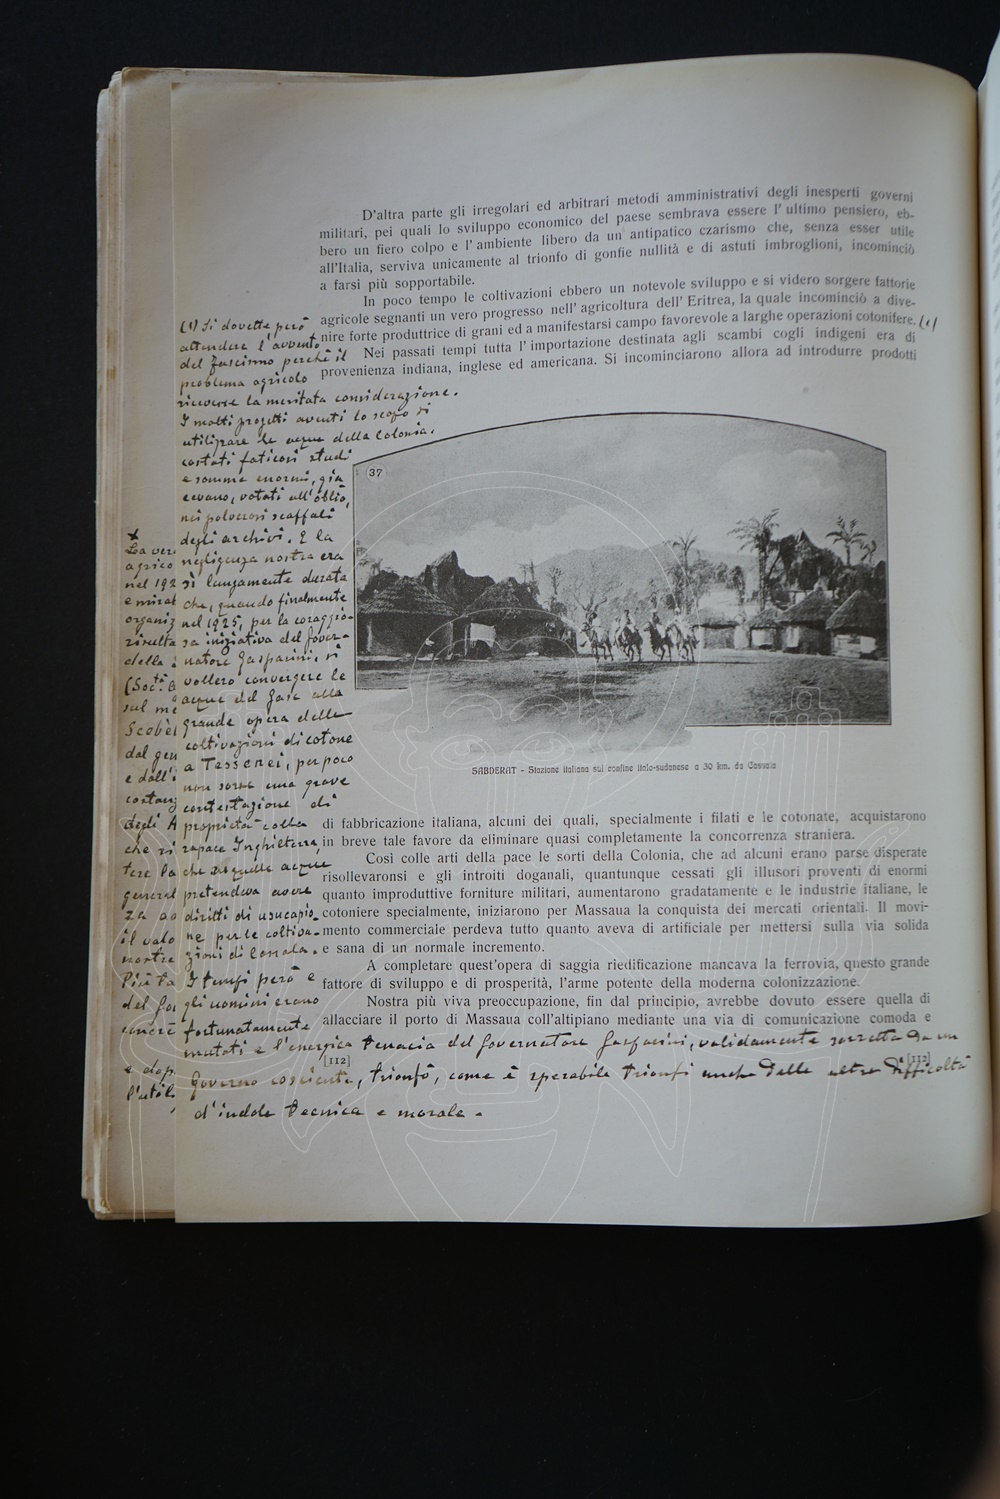 D'altra parte gli irregolari ed arbitrari metodi amministrativi degli inesperti governi
militari, pei quali lo sviluppo economico del paese sembrava essere l'ultimo pensiero, eb-
bero un fiero colpo e l'ambiente libero da un antipatico czarismo che, senza esser utile
all'Italia, serviva unicamente al trionfo di gonfie nullità e di astuti imbroglioni, incominciò
a farsi più sopportabile.
In poco tempo le coltivazioni ebbero un notevole sviluppo e si videro sorgere fattorie
agricole segnanti un vero progresso nell'agricoltura dell'Eritrea, la quale incominciò a dive-
nire forte produttrice di grani ed a manifestarsi campo favorevole a larghe operazioni cotonifere. (1)
Nei passati tempi tutta l'importazione destinata agli scambi cogli indigeni era di
provenienza indiana, inglese ed americana. Si incominciarono allora ad introdurre prodotti
(1) Si dovette però
attendere l'avvento
del fascismo perchè il
problema agricolo
ricevesse la meritata considerazione.
I molti progetti aventi lo scopo di
utilizzare le acque della Colonia,
costati faticosi studi
e somme enormi, gia
cevano, votati all'oblio,
nei polverosi scaffali
degli archivi. E la
negligenza nostra era
sì lungamente durata
che, quando finalmente
nel 1925, per la coraggio-
sa iniziativa del Gover-
natore Gasparini, si
vollero convergere le
acque del Gasc alla
grande opera delle
coltivazioni di cotone
a Tessenei, per poco
non sorse una grave
contestazione di
proprietà colla
rapace Inghilterra,
che su quelle acque
pretendeva avere
diritti di usucapio-
ne per le coltiva-
zioni di Cassala.
I tempi però e
gli uomini erano
fortunatamente
mutati e l'energica tenacia del Governatore Gasparini, validamente sorretta da un
Governo cosciente, trionfò, come è sperabile trionfi anche delle altre difficoltà
d'indole tecnica e morale.
La ver
agrico
nel 192
e mirab
organiz
risulta
della
(Soc.tà
sul me
Scobel
dal gen
e dall'i
costanz
degli A
che si
tere la
general
za ao
il valo
nostre
Pieta
del Go
e dop
l'util
37
SABDERAT - Stazione italiana sul confine italo-sudanese a 30 km. da Cassala
di fabbricazione italiana, alcuni dei quali, specialmente i filati e le cotonate, acquistarono
in breve tale favore da eliminare quasi completamente la concorrenza straniera.
Così colle arti della pace le sorti della Colonia, che ad alcuni erano parse disperate
risollevaronsi e gli introiti doganali, quantunque cessati gli illusori proventi di enormi
quanto improduttive forniture militari, aumentarono gradatamente e le industrie italiane, le
cotoniere specialmente, iniziarono per Massaua la conquista dei mercati orientali. Il movi-
mento commerciale perdeva tutto quanto aveva di artificiale per mettersi sulla via solida
e sana di un normale incremento.
A completare quest'opera di saggia riedificazione mancava la ferrovia, questo grande
fattore di sviluppo e di prosperità, l'arme potente della moderna colonizzazione.
Nostra più viva preoccupazione, fin dal principio, avrebbe dovuto essere quella di
allacciare il porto di Massaua coll'altipiano mediante una via di comunicazione comoda e
[112]
[112]